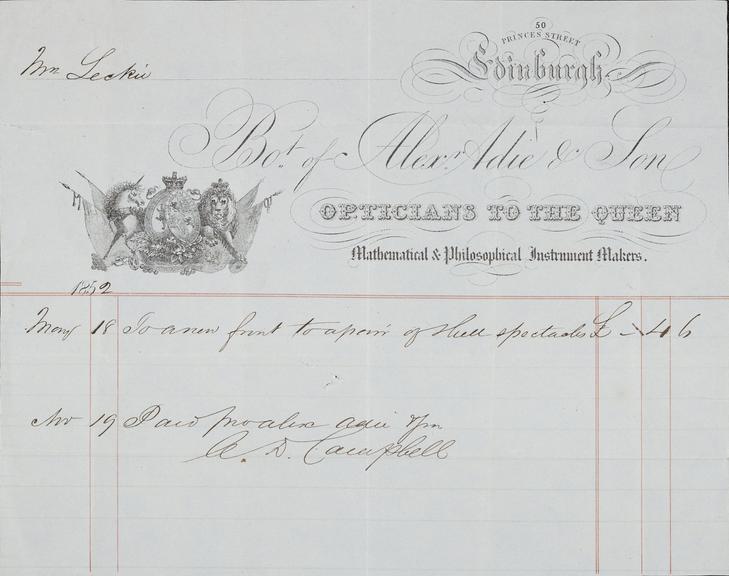 50
PRINCES STREET
Edinburgh.
Mrs. Leckie
Bot. of Alexr. Adie & Son
OPTICIANS TO THE QUEEN
Mathematical & Philosophical Instrument Makers.
1852
May 18 To a new front to a pair of shell spectacles £ - 4 6
Nov 19 Paid pro Alex Adie & Son
A. D. Campbell